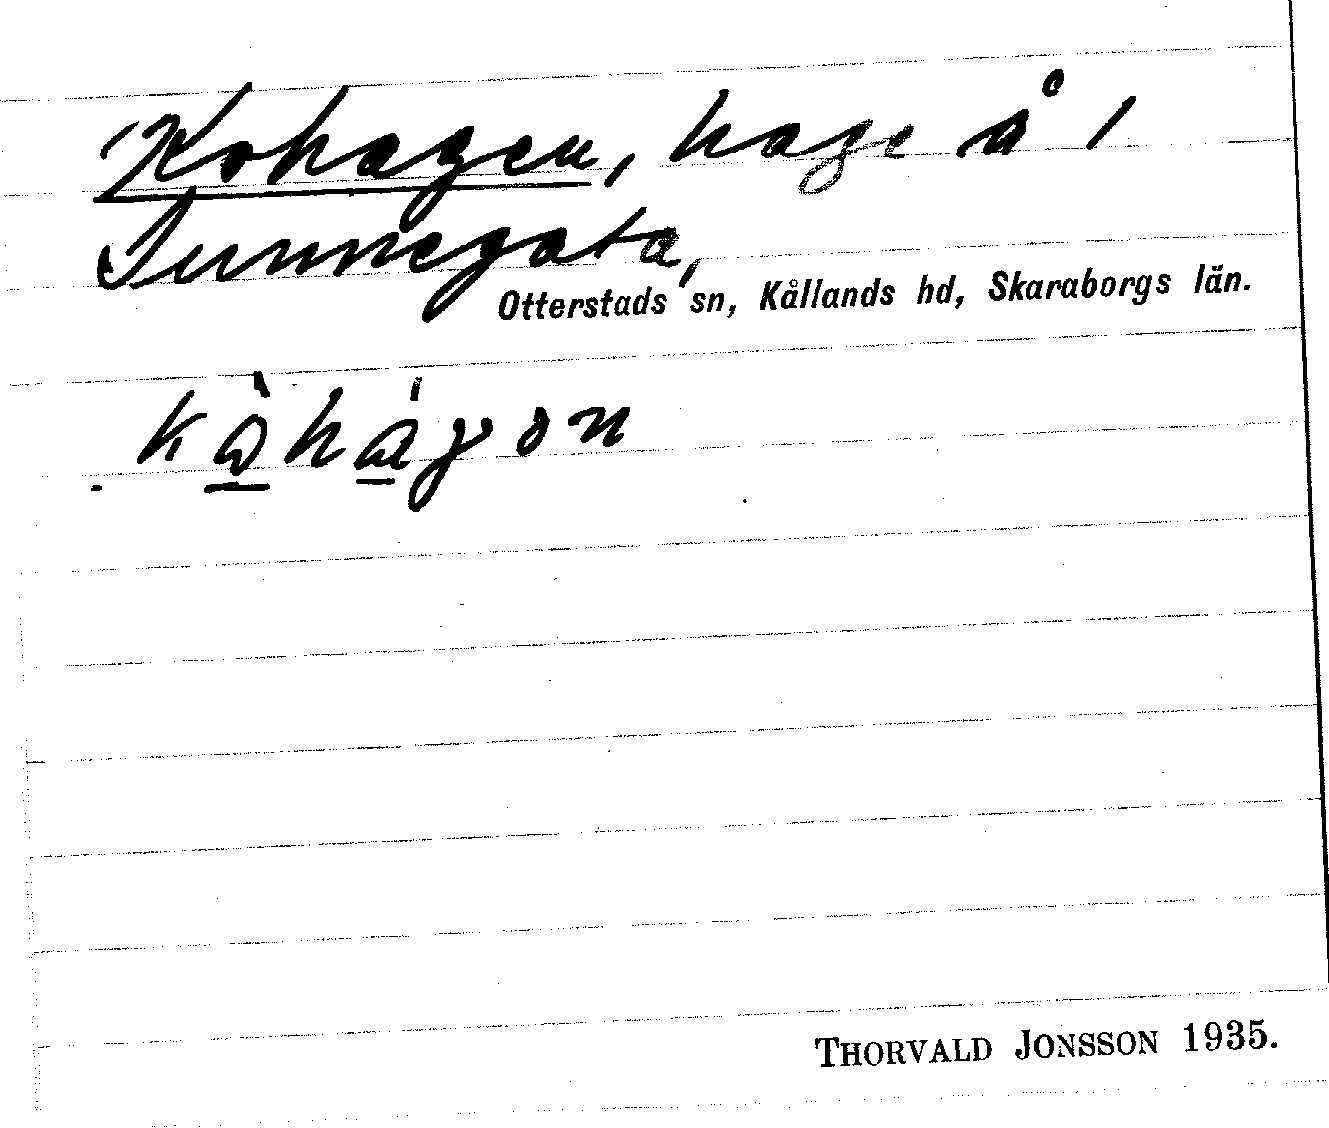 Kohagen, hage å 1
Sunnegata,
Otterstads sn, Kållands hd, Skaraborgs län.
kòhágən
THORVALD JONSSON 1935.